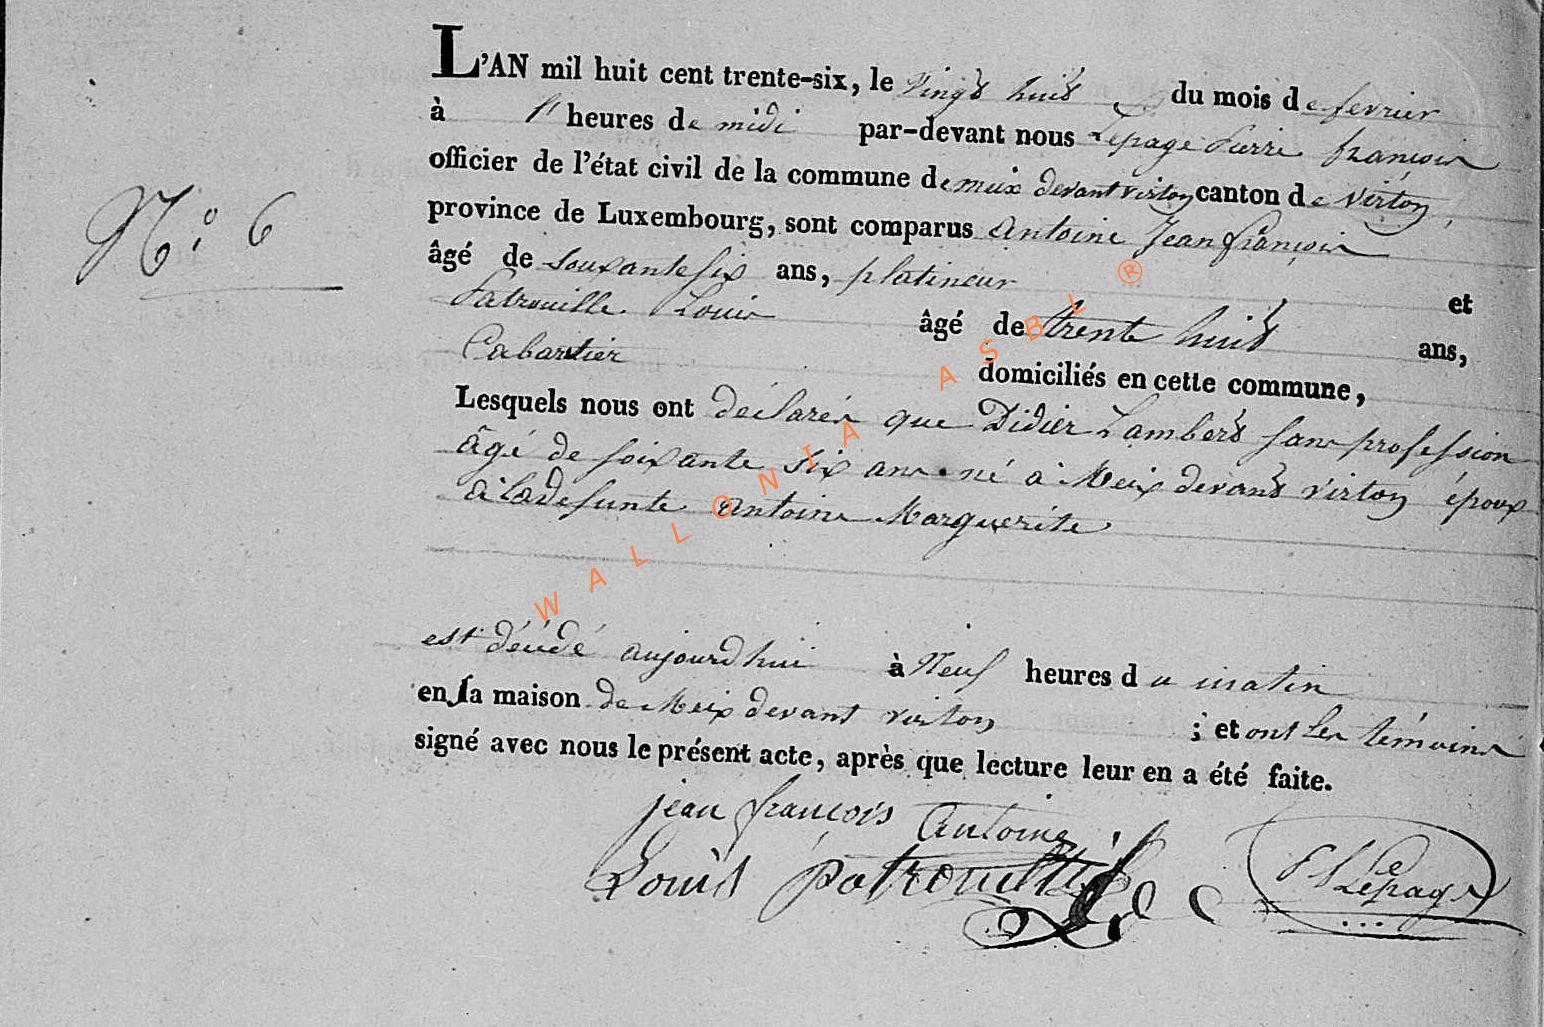 L'AN mil huit cent trente-six, le vingt huit du mois de fevrier
à heures de midi par-devant nous Lepage Pierre françois
officier de l'état civil de la commune de meix devant virton canton de virton,
N.° 6
province de Luxembourg, sont comparus Antoine Jean françois
âgé de souxante six ans, platineur et
Patrouille Louis âgé de trente huit ans,
Cabartier domiciliés en cette commune,
Lesquels nous ont déclarés que Didier Lambert sans profession
âgé de soixante six ans né à Meix devant virton époux
à la defunte Antoine Marguerite
est décédé aujourd'hui à Neuf heures du matin
en sa maison de Meix devant virton ; et ont les témoins
signé avec nous le présent acte, après que lecture leur en a été faite.
jean françois Antoine
Louis patrouille Lepage
WALLONIA ASBL ®